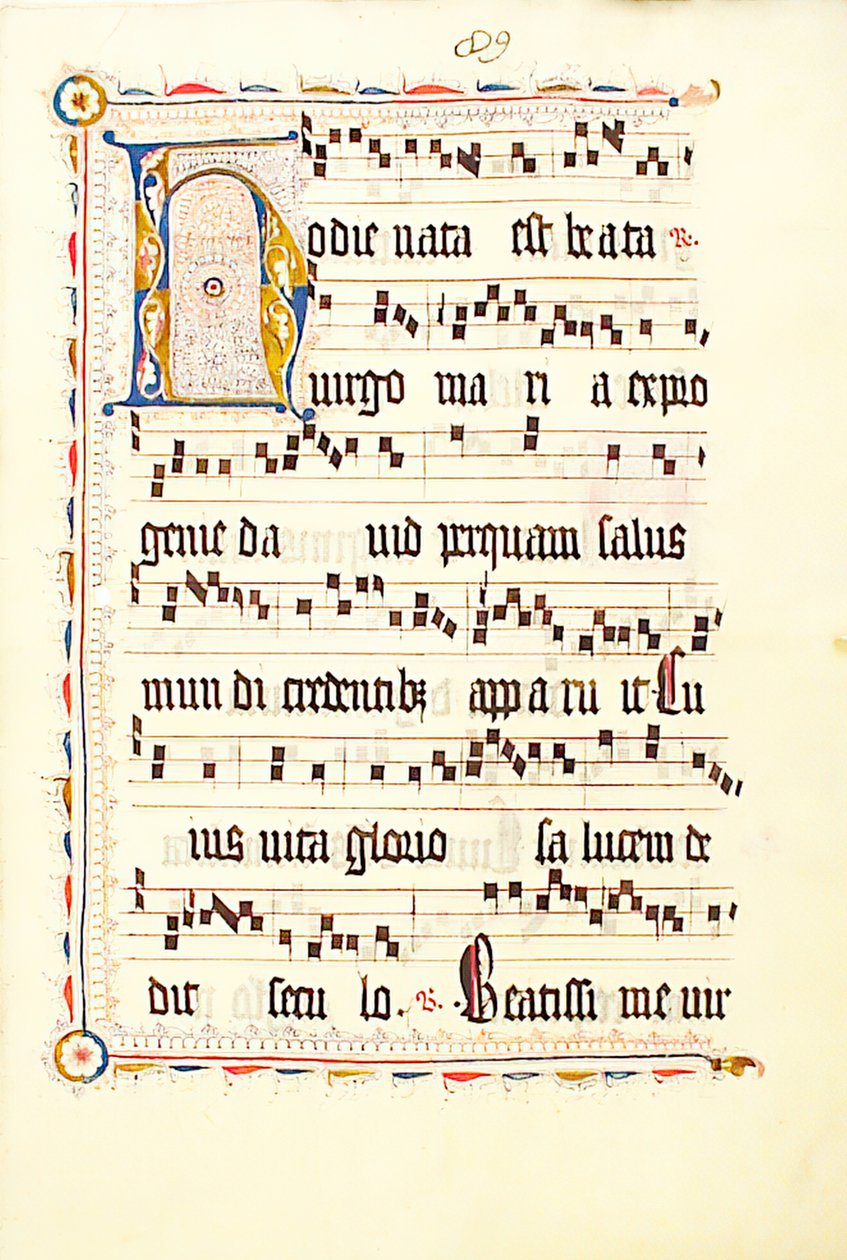 89
Hodie nata est beata R.
uirgo ma ri a expro
genie da uid perquam salus
mun di credentibꝫ app a ru it Cu
ius uita glorio sa lucem de
dit secu lo. V. Beatissi me uir